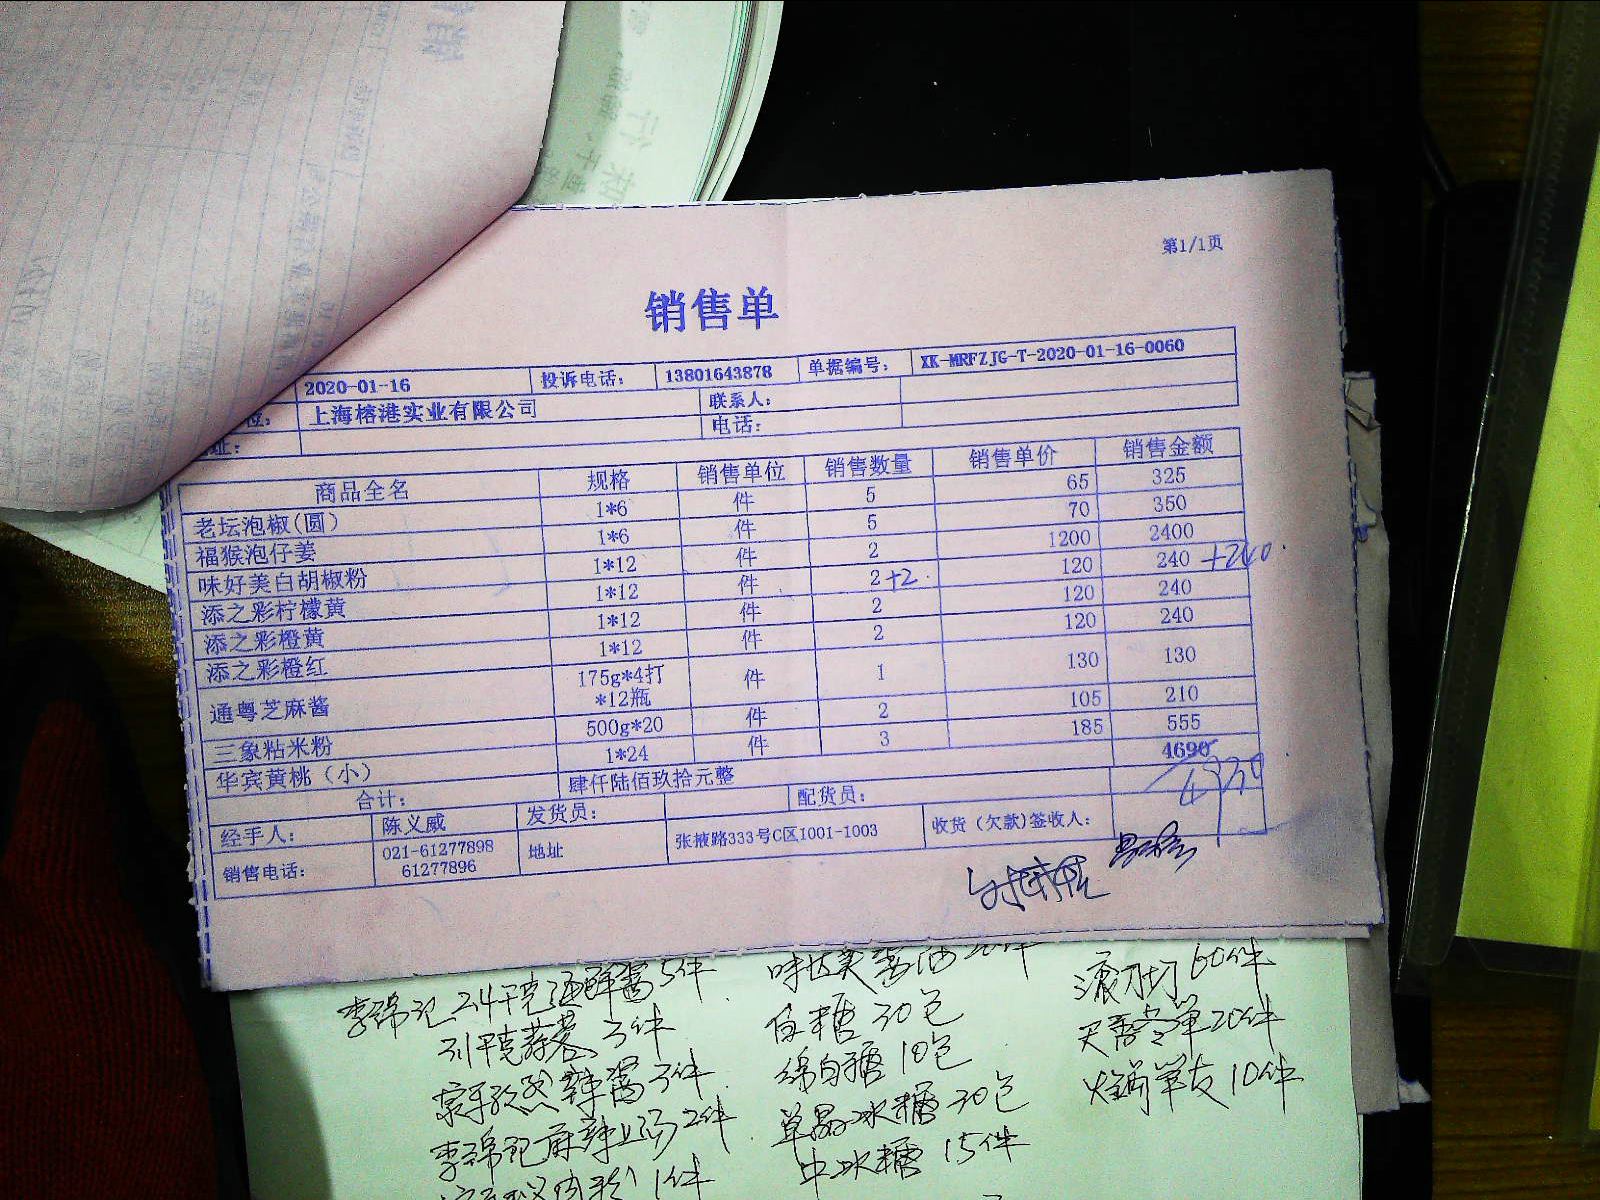 第1/1页
销售单
2020-01-16 投诉电话: 13801643878 单据编号: XK-MRFZJG-T-2020-01-16-0060
位: 上海榕港实业有限公司 联系人:
址: 电话:
商品全名 规格 销售单位 销售数量 销售单价 销售金额
老坛泡椒(圆) 1*6 件 5 65 325
福猴泡仔姜 1*6 件 5 70 350
味好美白胡椒粉 1*12 件 2 1200 2400
添之彩柠檬黄 1*12 件 2+2 120 240 +240
添之彩橙黄 1*12 件 2 120 240
添之彩橙红 1*12 件 2 120 240
通粤芝麻酱 175g*4打*12瓶 件 1 130 130
三象粘米粉 500g*20 件 2 105 210
华宾黄桃（小） 1*24 件 3 185 555
合计: 肆仟陆佰玖拾元整 4690
4930
经手人: 陈义威 发货员: 配货员:
销售电话: 021-61277898 61277896 地址 张掖路333号C区1001-1003 收货（欠款)签收人:
李锦记 2.4千克海鲜酱5件
蒜蓉 3件
辣酱3件
李锦记麻辣 2件
1件
味达美酱油20件
白糖 30包
绵白糖 10包
单晶冰糖 30包
中冰糖 15件
滚刀切 60件
20件
10件